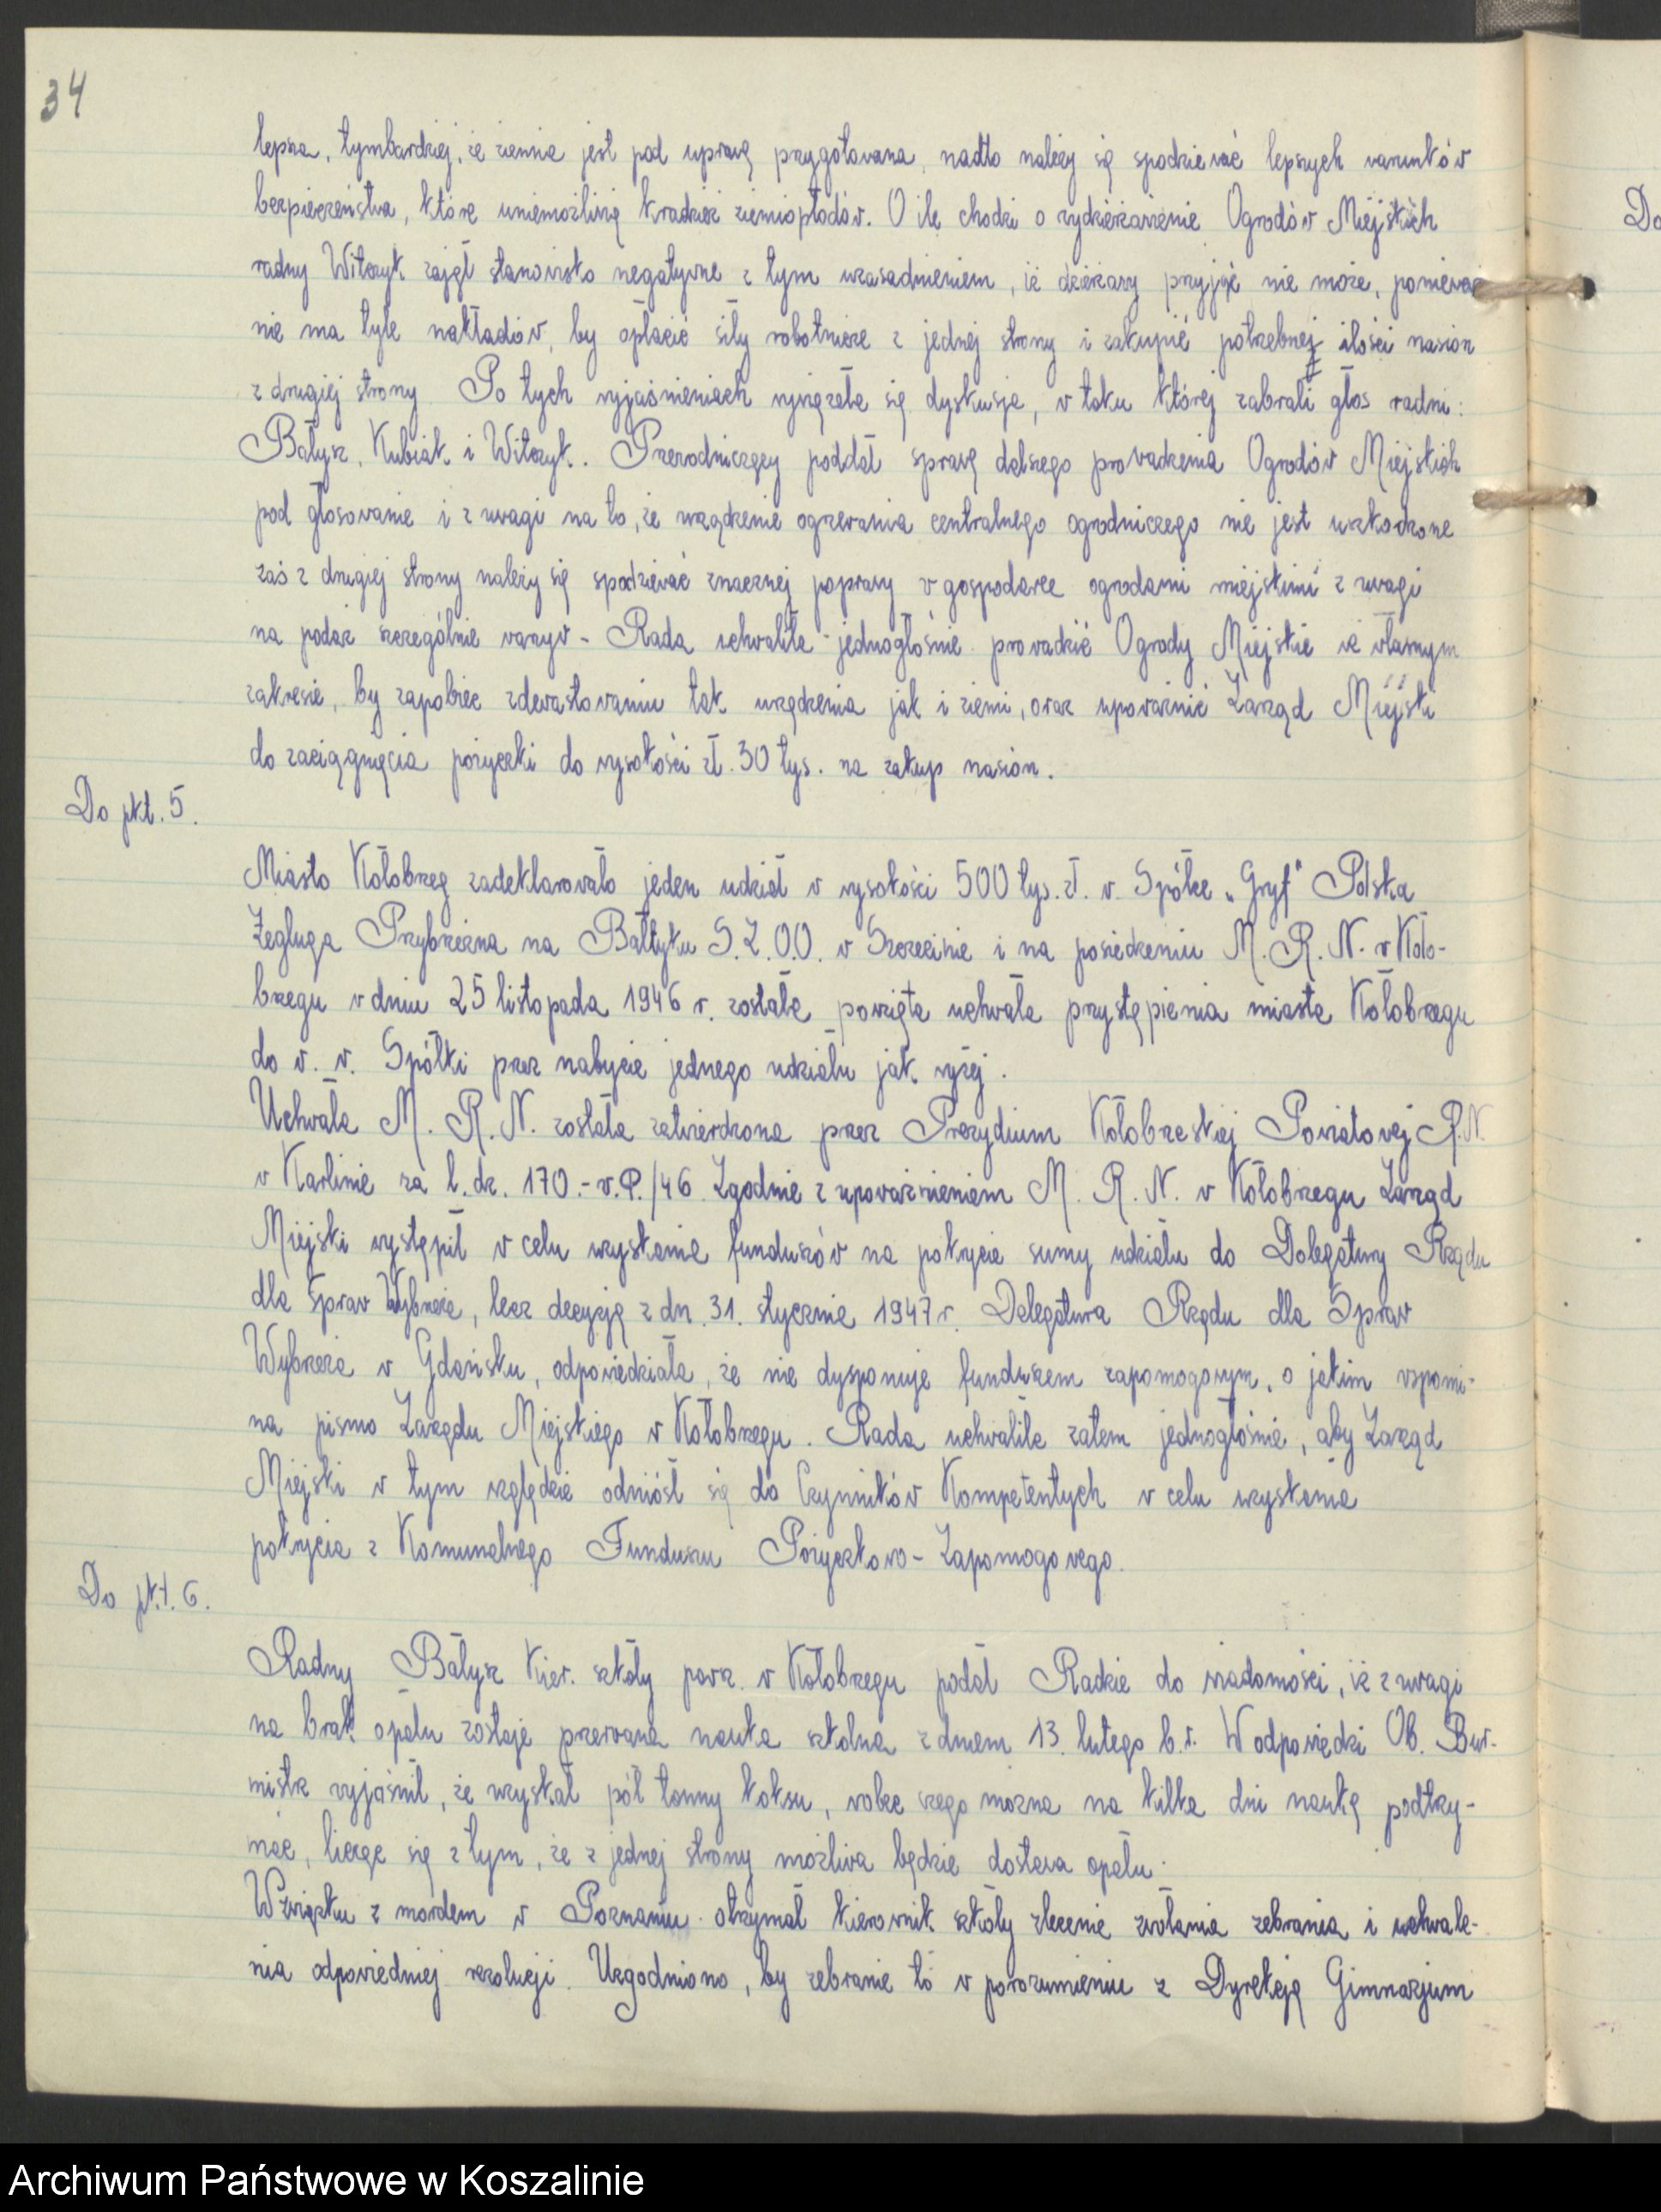 34
lepsza, tymbardziej, że ziemia jest pod uprawę przygotowana, nadto należy się spodziewać lepszych warunków
bezpieczeństwa, które uniemożliwią kradzież ziemiopłodów. O ile chodzi o wydzierżawienie Ogrodów Miejskich
radny Witczyk zajął stanowisko negatywne z tym uzasadnieniem, iż dzierżawy przyjąć nie może, ponieważ
nie ma tyle nakładów, by opłacić siły robotnicze z jednej strony i zakupić potrzebnej ilości nasion
z drugiej strony. Po tych wyjaśnieniach wywiązała się dyskusja, w toku której zabrali głos radni:
Bałysz, Kubiak i Witczyk. Przewodniczący poddał sprawę dalszego prowadzenia Ogrodów Miejskich
pod głosowanie i z uwagi na to, że urządzenie ogrzewania centralnego ogrodniczego nie jest uszkodzone
zaś z drugiej strony należy się spodziewać znacznej poprawy w gospodarce ogrodami miejskimi z uwagi
na podaż szczególnie warzyw - Rada uchwaliła jednogłośnie prowadzić Ogrody Miejskie we własnym
zakresie, by zapobiec zdewastowaniu tak urządzenia jak i ziemi, oraz upoważnić Zarząd Miejski
do zaciągnięcia pożyczki do wysokości zł. 30 tys. na zakup nasion.
Do pkt. 5.
Miasto Kołobrzeg zadeklarowało jeden udział w wysokości 500 tys. zł. w Spółce „Gryf" Polska
Żegluga Przybrzeżna na Bałtyku S.Z.O.O. w Szczecinie i na posiedzeniu M. R. N. w Koło-
brzegu w dniu 25 listopada 1946 r. została powzięta uchwała przystąpienia miasta Kołobrzegu
do w. w. Spółki przez nabycie jednego udziału jak wyżej.
Uchwała M. R. N. została zatwierdzona przez Prezydium Kołobrzeskiej Powiatowej R.N.
w Karlinie za l. dz. 170.-w.P./46. Zgodnie z upoważnieniem M. R. N. w Kołobrzegu Zarząd
Miejski wystąpił w celu uzyskania funduszów na pokrycie sumy udziału do Delegatury Rządu
dla Spraw Wybrzeża, lecz decyzją z dn. 31. stycznia 1947 r. Delegatura Rządu dla Spraw
Wybrzeża w Gdańsku, odpowiedziała, że nie dysponuje funduszem zapomogowym, o jakim wspomi-
na pismo Zarządu Miejskiego w Kołobrzegu. Rada uchwaliła zatem jednogłośnie, aby Zarząd
Miejski w tym względzie odniósł się do Czynników Kompetentych w celu uzyskania
pokrycia z Komunalnego Funduszu Pożyczkowo-Zapomogowego.
Do pkt. 6.
Radny Bałysz Kier. szkoły powsz. w Kołobrzegu podał Radzie do wiadomości, iż z uwagi
na brak opału zostaje przerwana nauka szkolna z dniem 13. lutego b.r. W odpowiedzi Ob. Bur-
mistrz wyjaśnił, że uzyskał pół tonny koksu, wobec czego można na kilka dni naukę podtrzy-
mać, licząc się z tym, że z jednej strony możliwa będzie dostawa opału.
W związku z mordem w Poznaniu otrzymał kierownik szkoły zlecenie zwołania zebrania i uchwale-
nia odpowiedniej rezolucji. Uzgodniono, by zebranie to w porozumieniu z Dyrekcją Gimnazjum
Do
Archiwum Państwowe w Koszalinie